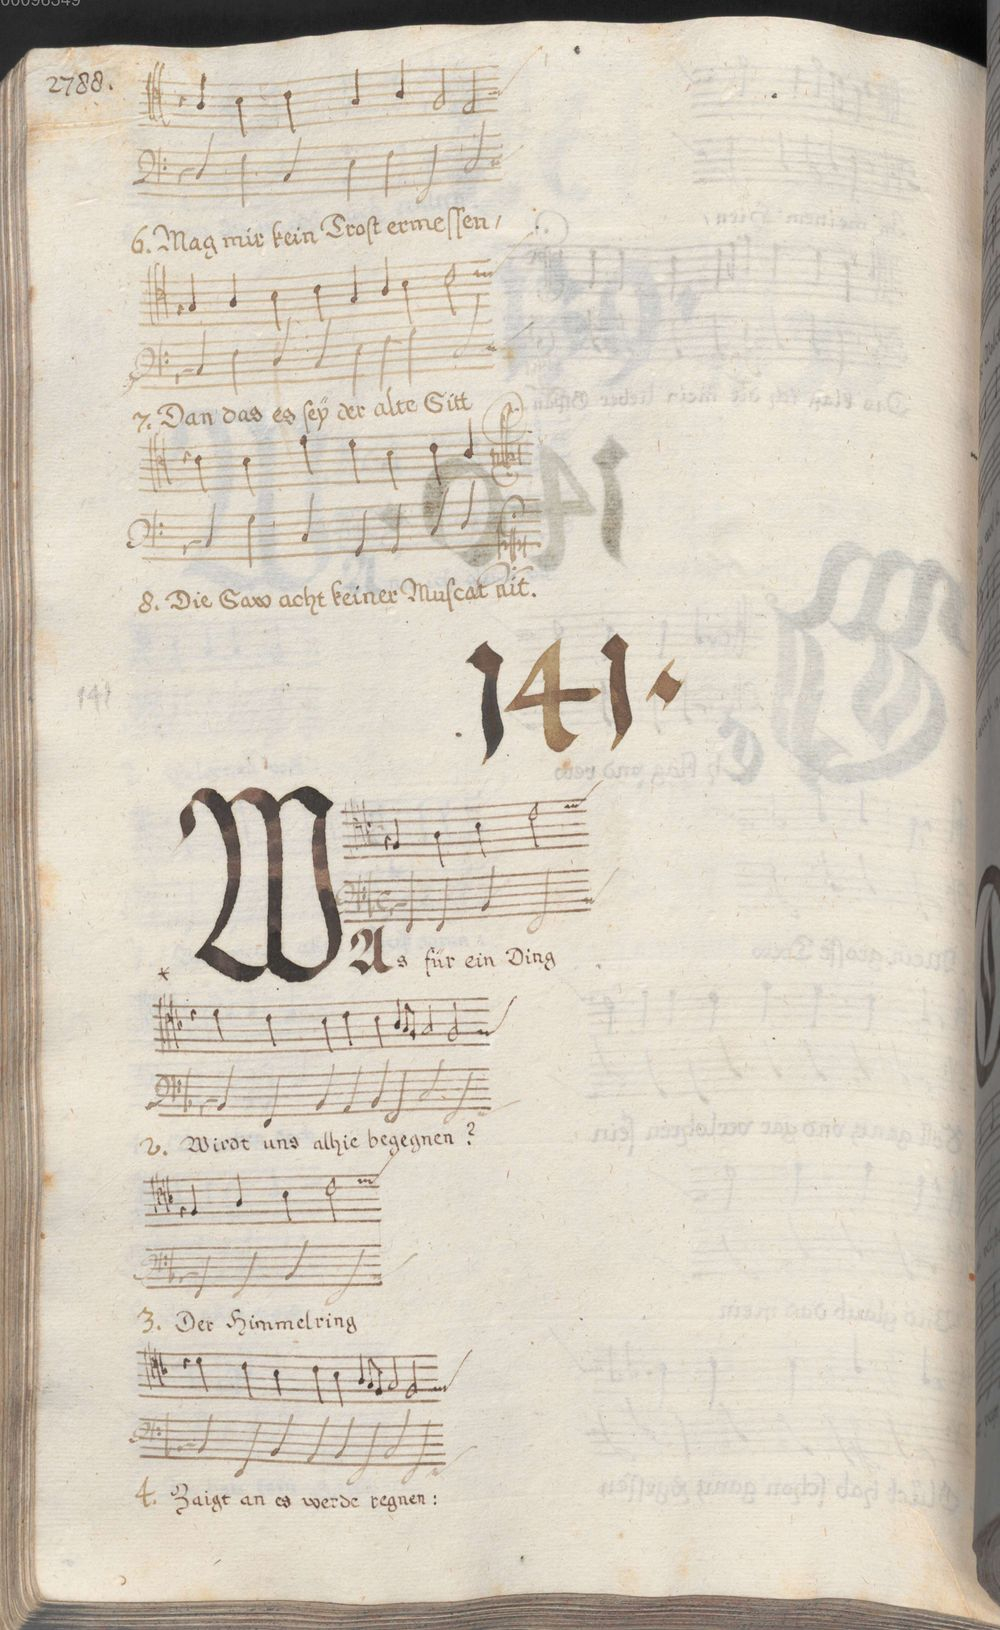 00098549
2788.
6. Mag mir kein Trost ermessen,
7. Dan das es seÿ der alte Sitt
8. Die Saw acht keiner Muscat nit.
141.
141
WAs für ein Ding
*
2. Wirdt uns alhie begegnen?
3. Der Himmelring
4. Zaigt an es werde regnen: